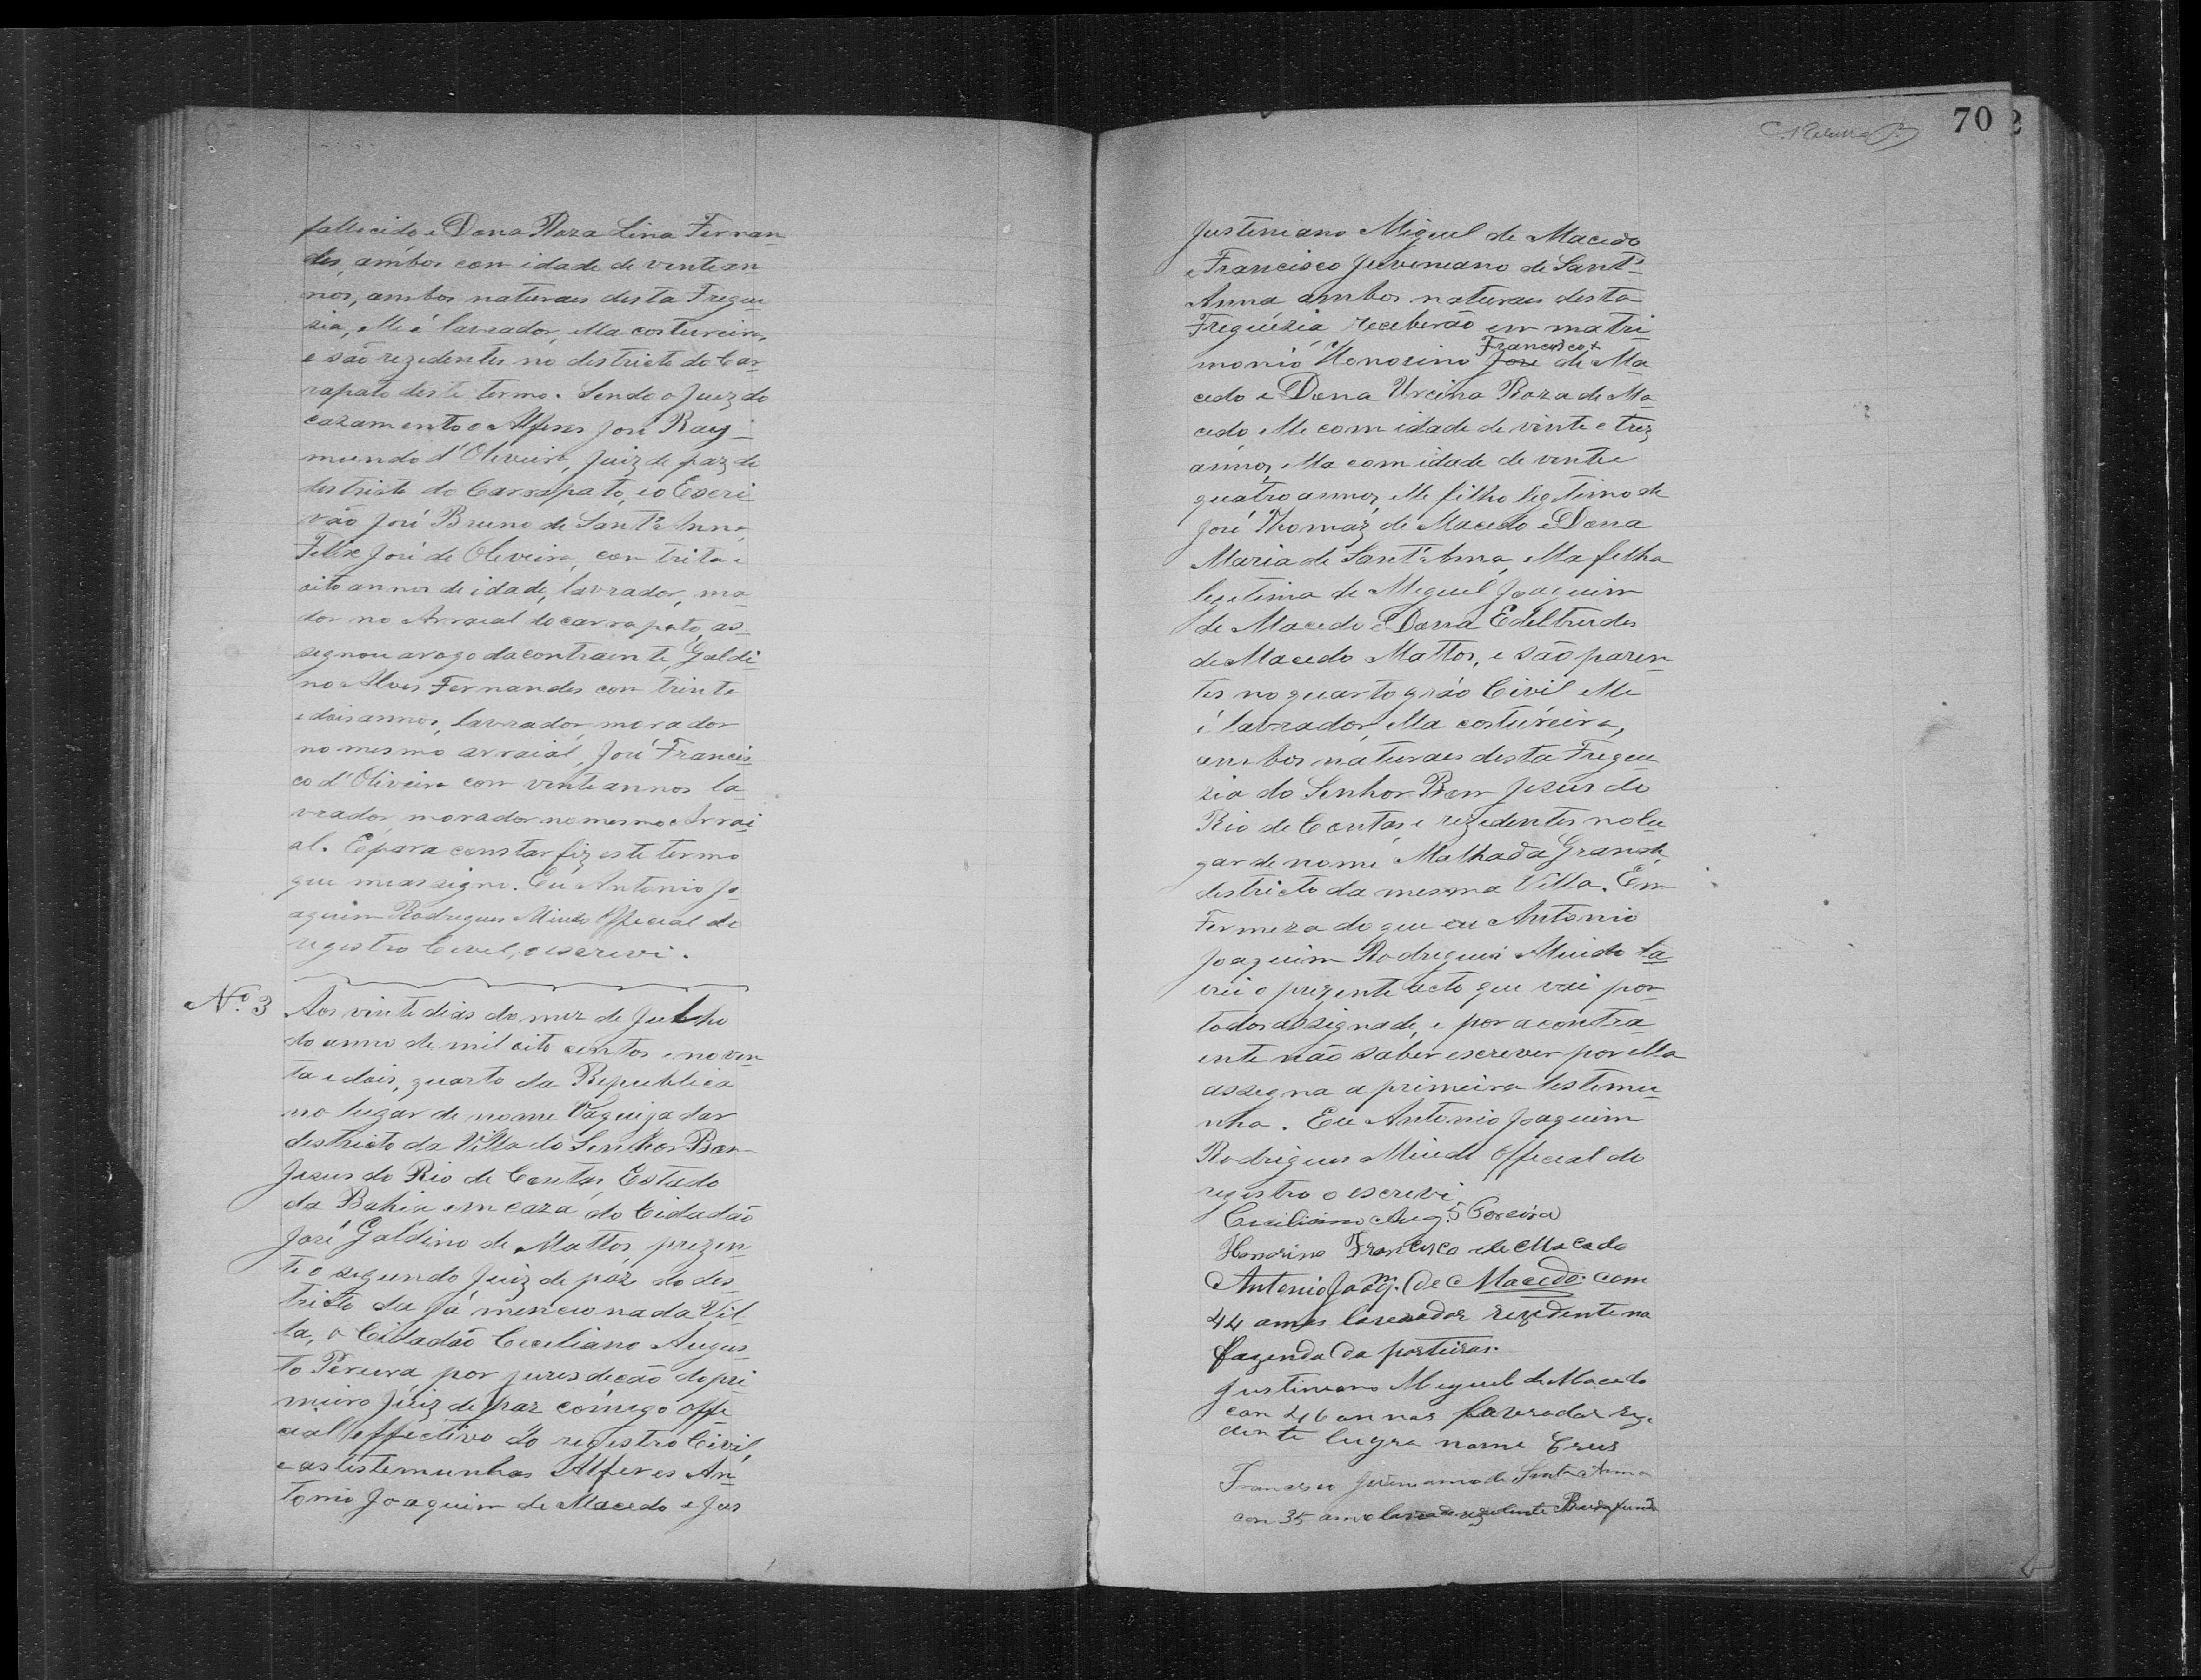 fallecido e Dona Roza Lina Fernan-
des, ambos com idade de vinte an-
nos, ambos naturaes desta Fregue
sia, elle é lavrador, ella costureira,
e são rezidentes no districto do Car-
rapato deste termo. Sendo o Juiz do
cazamento o Alferes José Ray-
mundo d'Oliveira, Juiz de paz do
districto do Carrapato, e o Escri-
vão José Bruno de Sant'Anna,
Felix José de Oliveira, com trita e
oito annos de idade, lavrador, mo-
dor no Arraial do carrapato, as-
segnou arogo da contraente, Galdi
no Alves Fernandes com trinta
e dois annos, lavrador, morador
no mesmo arraial, José Francis
co d'Oliveira com vinte annos la-
vrador morador no mesmo Arrai
al. E para constar fiz este termo
que me assigno. Eu Antonio Jo-
aquim Rodrigues Miudo Official do
registro Civel, o escrevi.
Nº. 3 Aos vinte dias do mez de Julho
do anno de mil oito centos e noven
ta e dois, quarto da Republica
no lugar de nome Vaquejador
destricto da Villa do Senhor Bom
Jezus do Rio de Contas, Estado
da Bahia em caza do Cidadão
José Galdino de Mattos, prezen-
te o segundo Juiz de páz do des-
tricto da já mencionada Vil-
la, o Cidadão Ceciliano Augus-
to Pereira por juresdecão do pri
meiro Juiz de paz comigo offi
cial effectivo do registro Civil,
e as testemunhas Alferes An-
tonio Joaquim de Macedo e Jus
70 2
Justiniano Miguel de Macedo
e Francisco Juveneano de Sant'-
Anna ambos naturaes desta
Freguezia, receberão em matri
Francisco x
monio Honorino José de Ma
cedo e Dona Urcina Roza de Ma-
cedo, elle com idade de vinte e trez
annos, ella com idade de vinte e
quatro annos, elle filho legitimo de
José Thomaz de Macedo e Dona
Maria de Sant'Anna, ella filha
legitima de Miguel Joaquim
de Macedo e Dona Edeltrudes
de Macedo Mattos, e são paren-
tes no quarto gráo Civil elle
é lavrador, ella costureira,
ambos naturaes desta Fregue
zia do Senhor Bom Jezus do
Rio de Contas, e rezedentes no lu-
gar de nome Malhada Grande,
destricto da mesma Villa. Em
Fermeza do que eu Antonio
Joaquim Rodrigues Miudo la-
vrei o prezente acto que vai por
todos assignado, e por a contra-
ente não saber escrever por ella
assegna a primeira testemu-
nha. Eu Antonio Joaquim
Rodrigues Miudo Official do
registro o escrevi.
Ceciliano Aug.to Pereira
Honorino Francisco de Macedo
Antonio Joaqm. de Macedo com
44 annos lavrador rezidente na
fazenda da porteiras.
Justiniano Miguel de Macedo
con 46 annos lavrador rezi
dente lugra nome Crus
Francisco Juveneano de Santa Anna
con 35 anno lavrador rezidente